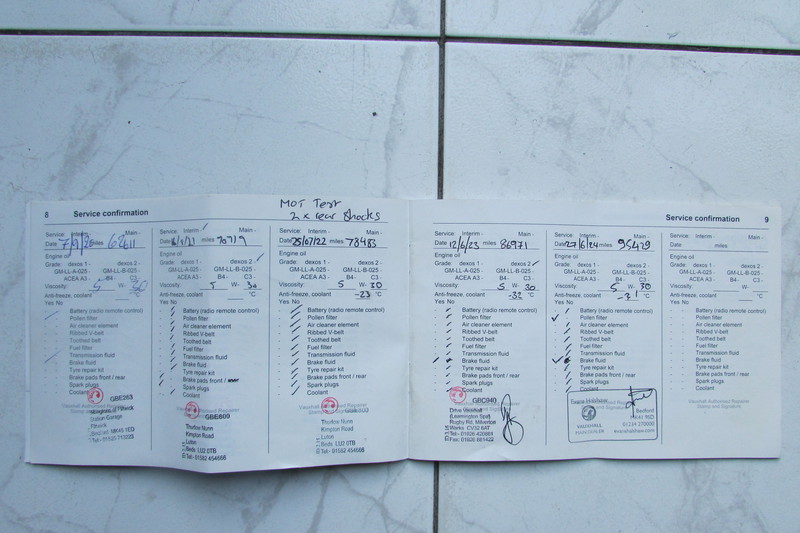 MOT Test
2 x rear shocks
8 Service confirmation
Service: Interim - Main -
Date 7/9/20 miles 62611
Engine oil
Grade: dexos 1 - dexos 2 -
GM-LL-A-025 - GM-LL-B-025 -
ACEA A3 - B4 - C3 -
Viscosity: 5 W- 30
Anti-freeze, coolant °C
Yes No
Battery (radio remote control)
Pollen filter
Air cleaner element
Ribbed V-belt
Toothed belt
Fuel filter
Transmission fluid
Brake fluid
Tyre repair kit
Brake pads front / rear
Spark plugs
Coolant
Vauxhall Authorised Repairer
Stamp and Signature
GBE263
Flitwick
Service: Interim - Main -
Date miles 70719
Engine oil
Grade: dexos 1 - dexos 2 -
GM-LL-A-025 - GM-LL-B-025 -
ACEA A3 - B4 - C3 -
Viscosity: 5 W- 30
Anti-freeze, coolant °C
Yes No
Battery (radio remote control)
Pollen filter
Air cleaner element
Ribbed V-belt
Toothed belt
Fuel filter
Transmission fluid
Brake fluid
Tyre repair kit
Brake pads front /
Spark plugs
Coolant
GBE609
Thurlow Nunn
Kimpton Road
Luton
Beds LU2 0TB
Tel:- 01582 454666
Service: Interim - Main -
Date 25/07/22 miles 78483
Engine oil
Grade: dexos 1 - dexos 2 -
GM-LL-A-025 - GM-LL-B-025 -
ACEA A3 - B4 - C3 -
Viscosity: 5 W- 30
Anti-freeze, coolant -23 °C
Yes No
Battery (radio remote control)
Pollen filter
Air cleaner element
Ribbed V-belt
Toothed belt
Fuel filter
Transmission fluid
Brake fluid
Tyre repair kit
Brake pads front / rear
Spark plugs
Coolant
Thurlow Nunn
Kimpton Road
Luton
Beds. LU2 0TB
Tel:- 01582 454666
Service confirmation 9
Service: Interim - Main -
Date 12/6/23 miles 86971
Engine oil
Grade: dexos 1 - dexos 2 -
GM-LL-A-025 - GM-LL-B-025 -
ACEA A3 - B4 - C3 -
Viscosity: 5 W- 30
Anti-freeze, coolant -32 °C
Yes No
Battery (radio remote control)
Pollen filter
Air cleaner element
Ribbed V-belt
Toothed belt
Fuel filter
Transmission fluid
Brake fluid
Tyre repair kit
Brake pads front / rear
Spark plugs
Coolant
GBC940
Drive Vauxhall
(Leamington Spa)
Rugby Rd, Milverton
Works CV32 6AT
Tel:- 01926 420861
Fax: 01926 881432
Service: Interim - Main -
Date 27/6/24 miles 95429
Engine oil
Grade: dexos 1 - dexos 2 -
GM-LL-A-025 - GM-LL-B-025 -
ACEA A3 - B4 - C3 -
Viscosity: 5 W- 30
Anti-freeze, coolant -31 °C
Yes No
Battery (radio remote control)
Pollen filter
Air cleaner element
Ribbed V-belt
Toothed belt
Fuel filter
Transmission fluid
Brake fluid
Tyre repair kit
Brake pads front / rear
Spark plugs
Coolant
Evans Halshaw
Bedford
MK41 9QD
01234 270000
VAUXHALL
evanshalshaw.com
Service: Interim - Main -
Date miles
Engine oil
Grade: dexos 1 - dexos 2 -
GM-LL-A-025 - GM-LL-B-025 -
ACEA A3 - B4 - C3 -
Viscosity: W-
Anti-freeze, coolant °C
Yes No
Battery (radio remote control)
Pollen filter
Air cleaner element
Ribbed V-belt
Toothed belt
Fuel filter
Transmission fluid
Brake fluid
Tyre repair kit
Brake pads front / rear
Spark plugs
Coolant
Vauxhall Authorised Repairer
Stamp and Signature